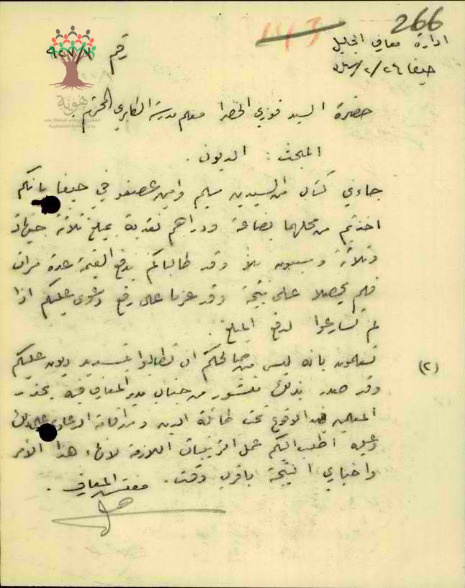 266
143
ادارة معارف الجليل
حيفا ٢٦/٢/
رقم ٩٤٧/٧
هوية
حضرة السيد فوزي الخضرا معلم مدرسة الكابري المحترم
المبحث : الديون .
جاءني كتاب من السيدين سليم وامين عصفور في حيفا بانكم
اخذتم من محلهما بضاعة ودراهم نقدية بمبلغ ثلاثة جنيهات
وثلاثة وسبعون ملاً وقد طالباكم بدفع القيمة عدة مرات
فلم يحصلا على نتيجة وقد عزما على رفع دعوى عليكم اذا
لم تسارعوا لدفع المبلغ .
(٢) تعلمون بانه ليس من صالحكم ان تطالبوا بتسديد ديون عليكم
وقد صدر بذلك منشور من جناب مدير المعارف فيه يحذر
المعلمين من الوقوع تحت طائلة الدين
وعليه اطلب اليكم عمل الترتيبات اللازمة لانهاء هذا الامر
واخباري النتيجة باقرب وقت . مفتش المعارف .